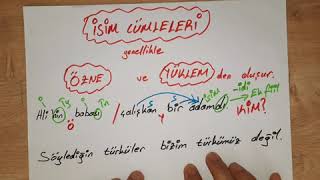 İSİM CÜMLELERİ
genellikle
ÖZNE ve YÜKLEM den oluşur.
İsim -idi
Ali'nin babası / çalışkan bir adamdı Ek fiil
Ö S S Y KİM?
Söylediğin türküler bizim türkümüz değil.